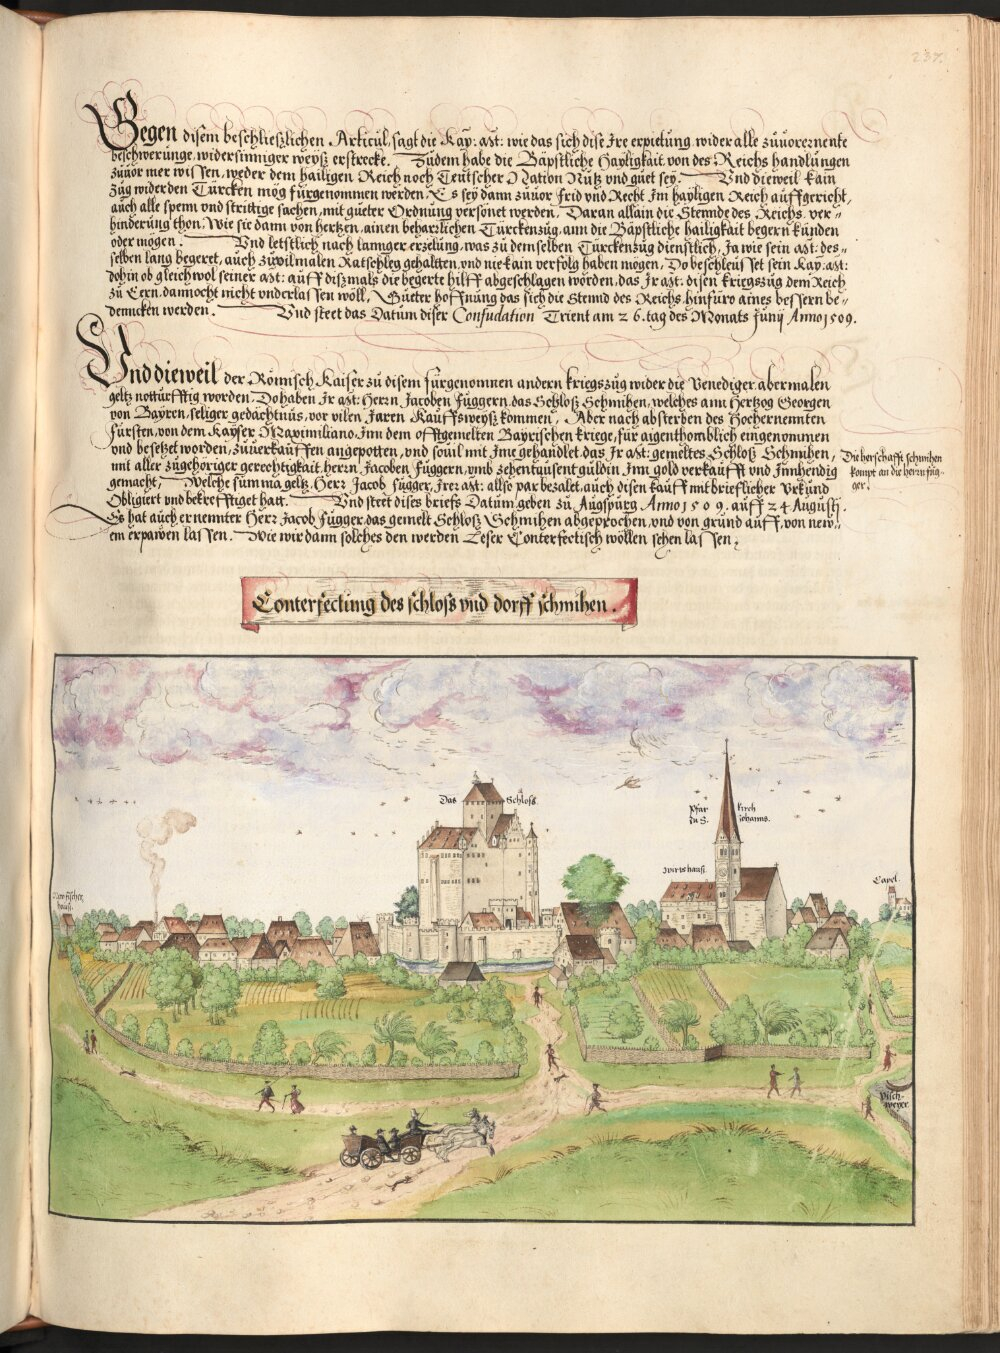 237.
Gegen disem beschließlichen Articul, sagt die Kay: Mt: wie das sich dise Ire erpietung, wider alle zuuorernente
beschwerunge, widersinniger weyß erstrecke. Zudem habe die Bäpstliche Hayligkait, von des Reichs handlungen
zuuor mer wissen, weder dem hailigen Reich noch Teutscher Nation Nutz vnd guet sey. Vnd dieweil kain
Zug wider den Türcken mög fürgenomen werden, Es sey dann zuuor frid vnd Recht Im hayligen Reich auffgericht,
auch alle spenn vnd strittige sachen, mit gueter Ordnung versönet werden, Daran allain die Stennde des Reichs ver-
hinderung thon, Wie sie dann von hertzen, ainen beharrlichen Türckenzug, ann die Bäpstliche hailigkait begern künden
oder mögen. Vnd letstlich nach lannger erzelung, was zu demselben Türckenzug dienstlich, Ja wie sein Mt: des-
selben lang begeret, auch zuuilmalen Ratschleg gehalten, vnd nie kain verfolg haben mögen, Do beschleusset sein Kay: Mt:
dohin ob gleichwol seiner Mt: auff dißmals die begerte hilff abgeschlagen worden, das Ir Mt: disen kriegszug dem Reich
zu Eern, dannocht nicht vnderlassen wöll, Gueter hoffnung das sich die Stennd des Reichs, hinfuro aines bessern be-
dencken werden. Vnd steet das Datum diser Confudation Trient am 26. tag des Monats Junij Anno 1509.
Vnd dieweil der Römisch Kaiser zu disem fürgenomnen andern kriegszug wider die Venediger, abermalen
geltz notturfftig worden, Do haben Ir Mt: Herrn Jacoben Fuggern, das Schloß Schmihen, welches ann Hertzog Georgen
von Bayren, seliger gedächtnus, vor vilen Jaren Kauffsweyß kommen, Aber nach absterben des Hochernennten
Fürsten, von dem Kayser Maximiliano, Inn dem offtgemelten Bayrischen kriege, für aigenthomblich eingenommen
vnd besetzet worden, zuuerkauffen angepotten, vnd souil mit Ime gehandlet, das Ir Mt: gemeltes Schloß Schmihen,
mit aller zugehöriger gerechtigkait, herrn Jacoben Fuggern, vmb zehentausent guldin Inn gold verkaufft vnd Innhendig
gemacht, Welche summa geltz, Herr Jacob Fugger, Irer Mt: allso par bezalet, auch disen kauff mit brieflicher Vrkund
Obligiert vnd bekrefftiget hatt. Vnd steet dises briefs Datum geben zu Augspurg Anno 1509. auff 24 Augusti.
Es hat auch ernennter Herr Jacob Fugger, das gemelt Schloß Schmihen abgeprochen, vnd von grund auff, von new-
em erpawen lassen. Wie wir dann solches den werden Leser Conterfectisch wöllen sehen lassen.
Die herschafft schmihen
kompt an die herrn fug-
ger.
Conterfectung des schloß vnd dorff schmihen.
Das Schloß.
Pfar kirch
zu S. Johanns.
wirtshauß.
Capel.
hauß.
visch-
weyer.